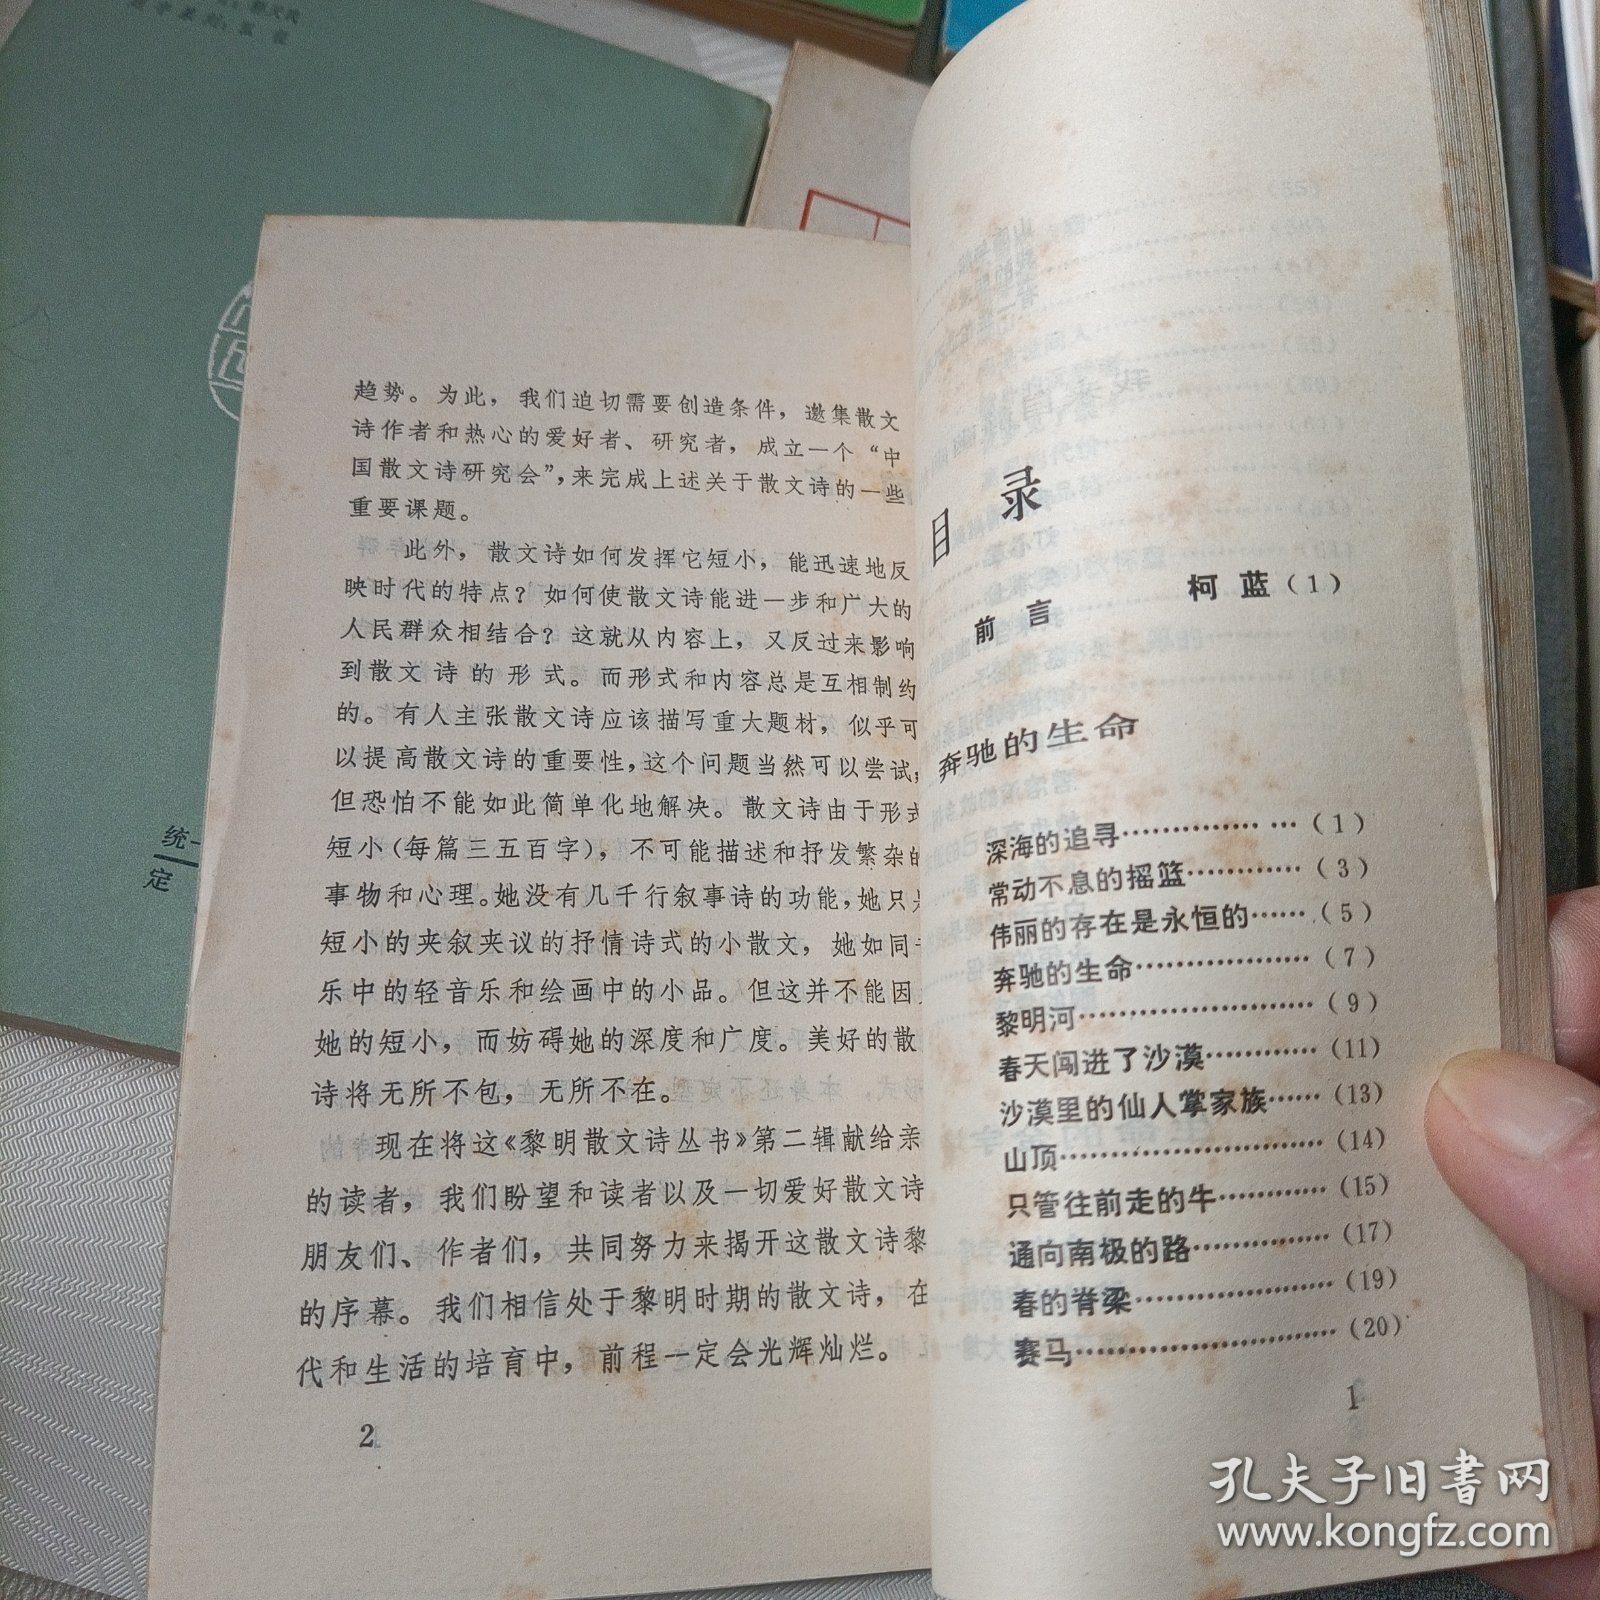 趋势。为此，我们迫切需要创造条件，邀集散文
诗作者和热心的爱好者、研究者，成立一个“中
国散文诗研究会”，来完成上述关于散文诗的一些
重要课题。
此外，散文诗如何发挥它短小，能迅速地反
映时代的特点？如何使散文诗能进一步和广大的
人民群众相结合？这就从内容上，又反过来影响
到散文诗的形式。而形式和内容总是互相制约
的。有人主张散文诗应该描写重大题材，似乎可
以提高散文诗的重要性，这个问题当然可以尝试，
但恐怕不能如此简单化地解决。散文诗由于形式
短小（每篇三五百字），不可能描述和抒发繁杂的
事物和心理。她没有几千行叙事诗的功能，她只是
短小的夹叙夹议的抒情诗式的小散文，她如同
乐中的轻音乐和绘画中的小品。但这并不能因
她的短小，而妨碍她的深度和广度。美好的散
诗将无所不包，无所不在。
现在将这《黎明散文诗丛书》第二辑献给亲
的读者，我们盼望和读者以及一切爱好散文诗
朋友们、作者们，共同努力来揭开这散文诗黎
的序幕。我们相信处于黎明时期的散文诗，在
代和生活的培育中，前程一定会光辉灿烂。
2
目录
前言 柯蓝（1）
奔驰的生命
深海的追寻……………（1）
常动不息的摇篮…………（3）
伟丽的存在是永恒的……（5）
奔驰的生命………………（7）
黎明河……………………（9）
春天闯进了沙漠…………（11）
沙漠里的仙人掌家族……（13）
山顶………………………（14）
只管往前走的牛…………（15）
通向南极的路……………（17）
春的脊梁…………………（19）
赛马………………………（20）
1
统一
定
孔夫子旧书网
www.kongfz.com